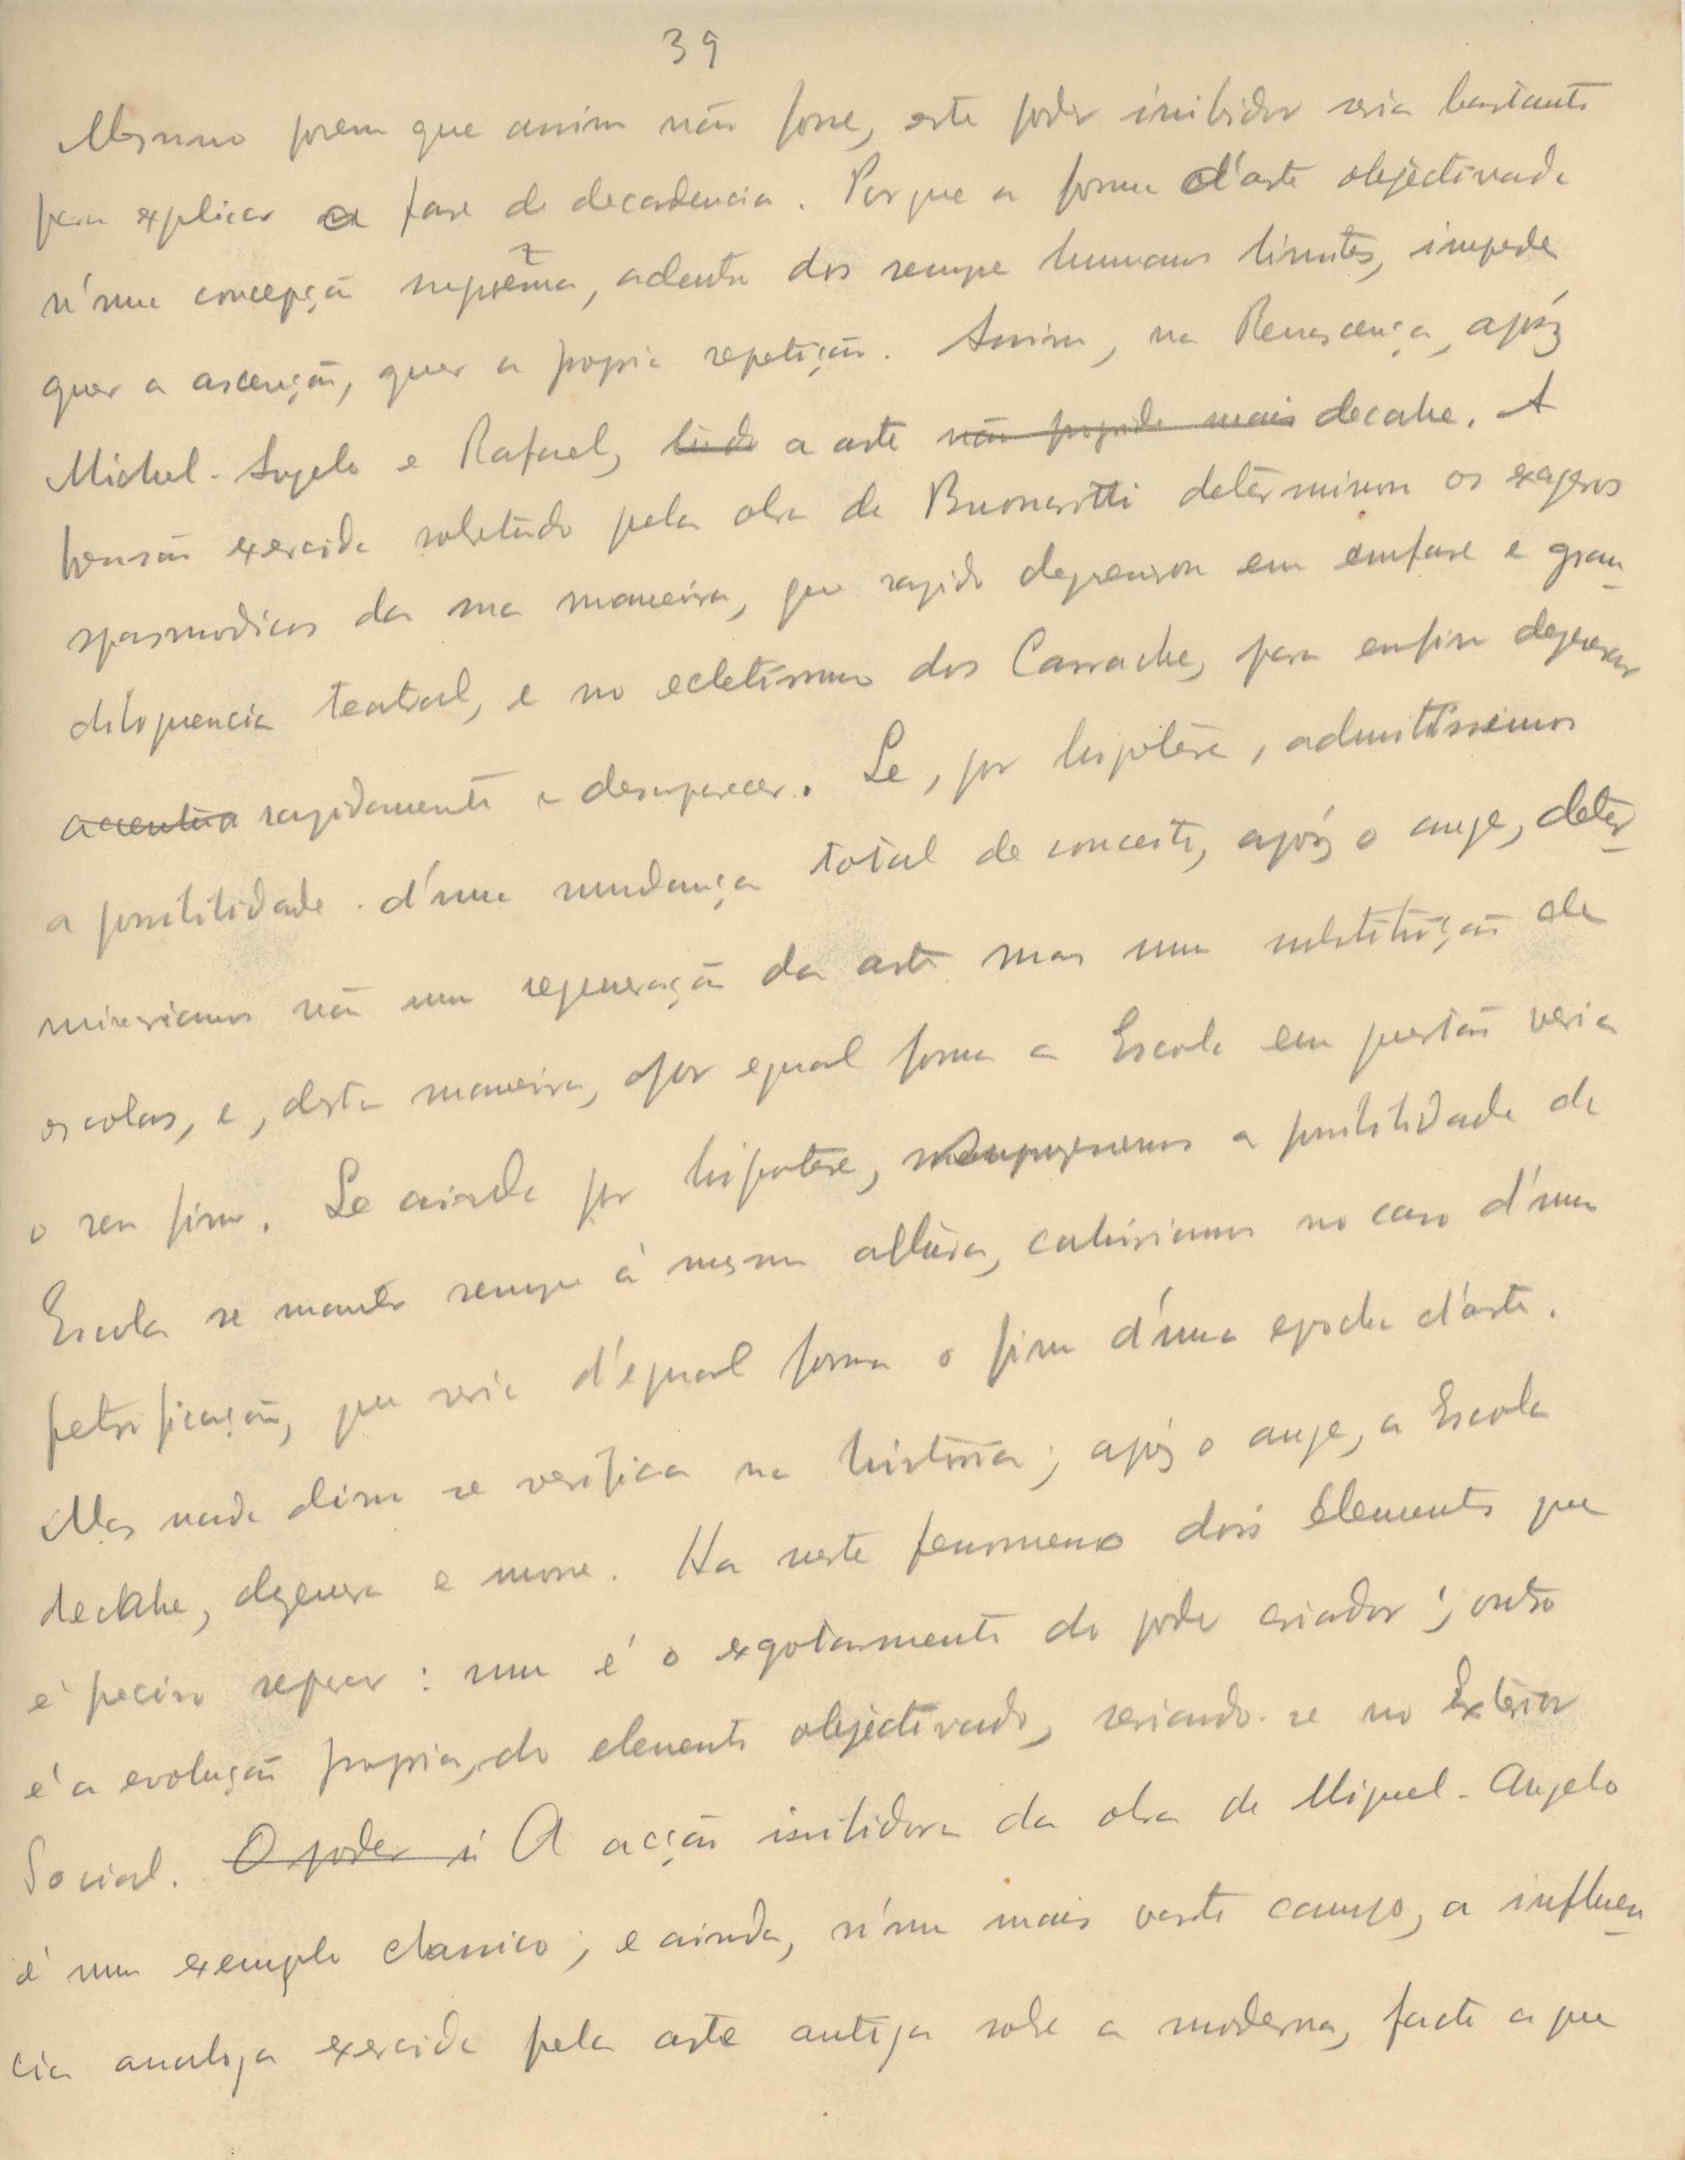 39
Mesmo porem que assim não fosse, este poder inibidor seria bastante
para explicar a fase de decadencia. Porque a forma d'arte objectivada
n'uma concepção suprema, adentro dos sempre humanos limites, impede
quer a ascenção, quer a propria repetição. Assim, na Renascença, após
Michel-Angelo e Rafael, tudo a arte não progride mais decahe. A
tensão exercida sobretudo pela obra de Buonarotti determinou os exageros
spasmodicos da sua maneira, que rapido degenerou em emfase e gran-
diloquencia teatral, e no ecletismo dos Carrache, para enfim degenerar
accentua rapidamente e desaparecer. Se, por hipotese, admitissimos
a possibilidade d'uma mudança total de conceito, após o auge, deter-
minariamos não uma regeneração da arte mas uma substituição de
escolas, e, desta maneira, por egual forma a Escola em questão veria
o seu fim. Se ainda por hipotese, supuzessemos a possibilidade da
Escola se manter sempre á mesma altura, cahiriamos no caso d'uma
petrificação, que seria d'egual forma o fim d'uma epocha d'arte.
Mas nada disso se verifica na historia; após o auge, a Escola
decahe, degenera e morre. Ha neste fenomeno dois elementos que
é preciso separar: um é o exgotamento do poder criador; outro
é a evolução propria, do elemento objectivado, seriando-se no Exterior
Social. O poder i A acção inibidora da obra de Miguel-Angelo
é um exemplo classico; e ainda, n'um mais vasto campo, a influen-
cia analoga exercida pela arte antiga sobre a moderna, facto a que